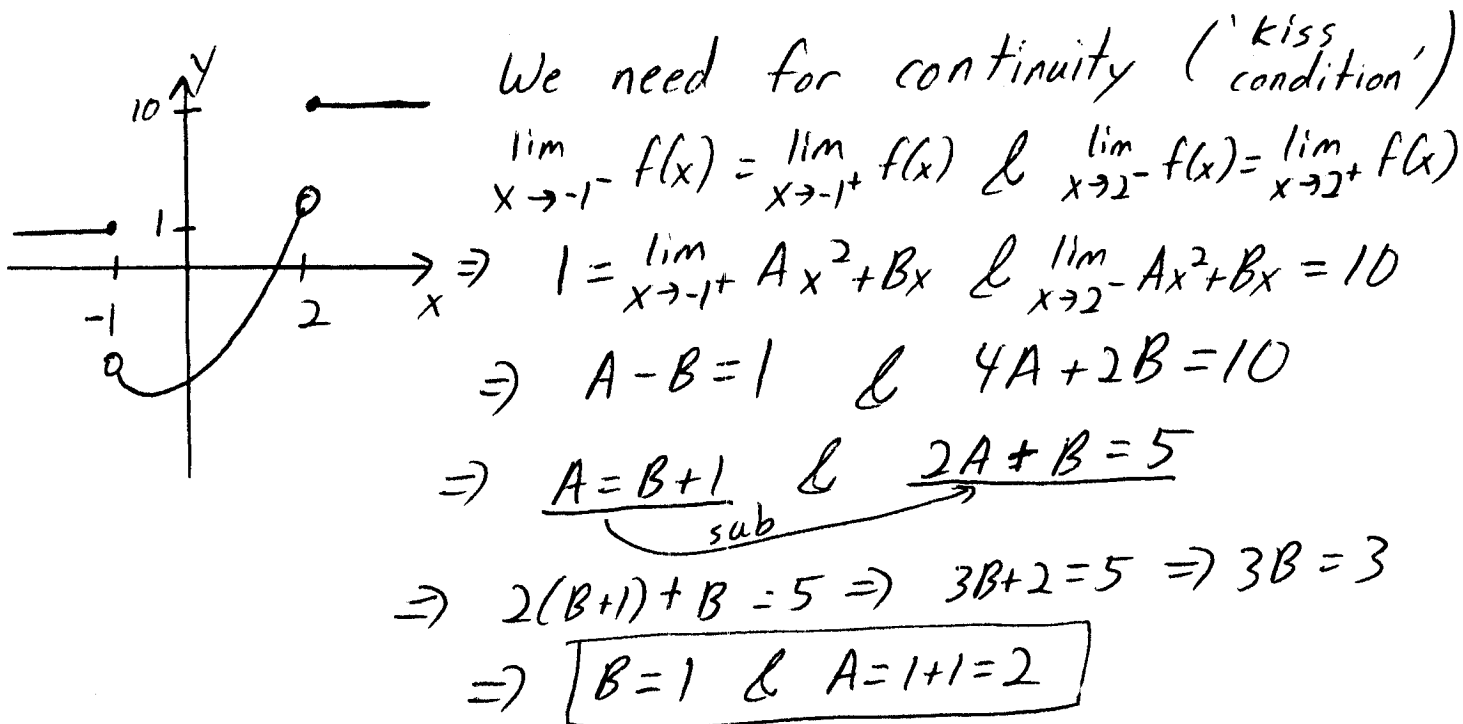 We need for continuity ('kiss condition')
lim x→-1⁻ f(x) = lim x→-1⁺ f(x) & lim x→2⁻ f(x) = lim x→2⁺ f(x)
⇒ 1 = lim x→-1⁺ Ax²+Bx & lim x→2⁻ Ax²+Bx = 10
⇒ A-B=1 & 4A+2B=10
⇒ A=B+1 & 2A+B=5
sub
⇒ 2(B+1)+B=5 ⇒ 3B+2=5 ⇒ 3B=3
⇒ B=1 & A=1+1=2
y
10
1
-1 2 x